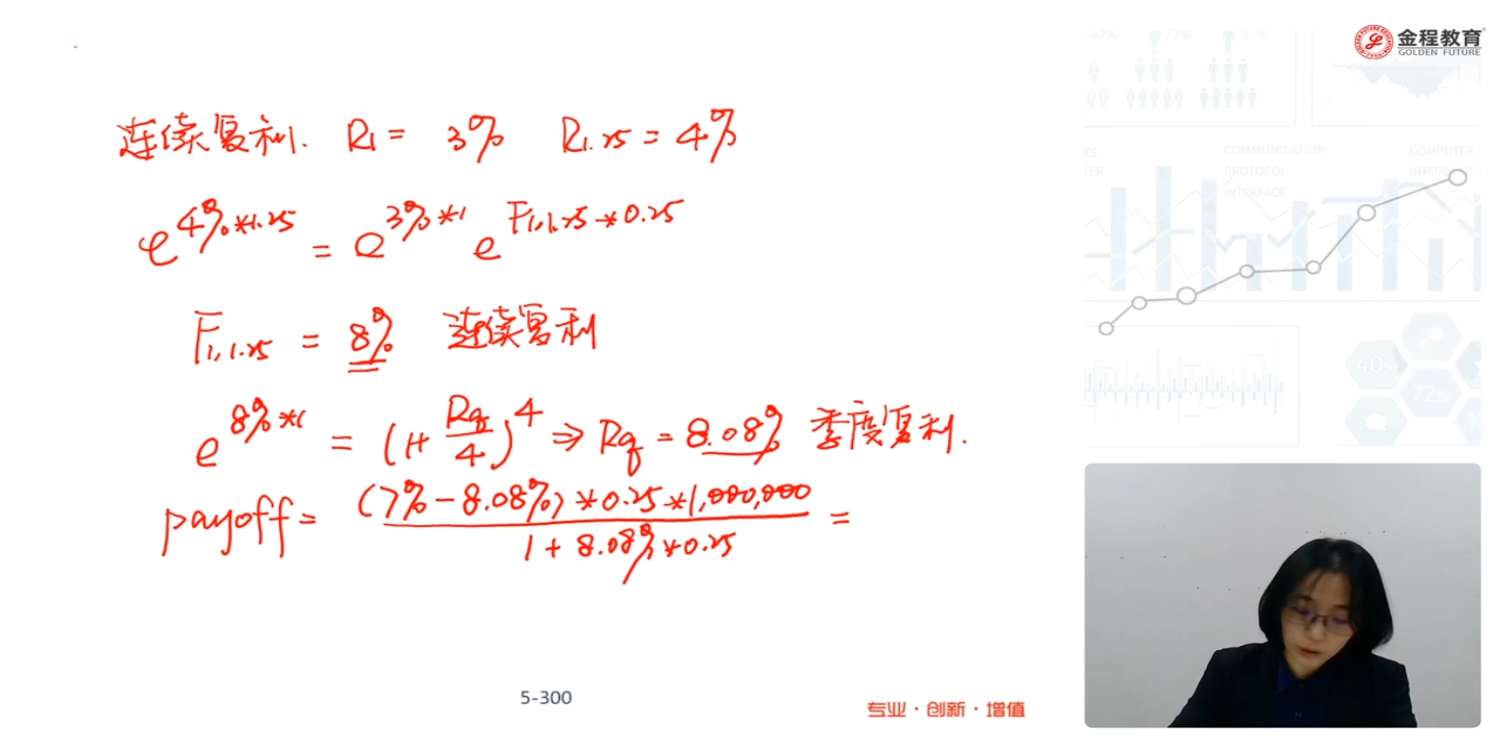 金程教育
GOLDEN FUTURE
连续复利. R1 = 3% R1.25 = 4%
e^4%*1.25 = e^3%*1 e^F1,1.25*0.25
F1,1.25 = 8% 连续复利
e^8%*1 = (1+Rq/4)^4 ⇒ Rq = 8.08% 季度复利.
payoff = (7%-8.08%)*0.25*1,000,000 / 1+8.08%*0.25 =
COMMUNICATION
PROTOCOL
INTERFACE
COMPUTER
40%
72%
5-300
专业·创新·增值